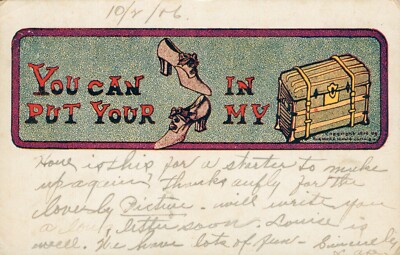 10/2/06.
YOU CAN IN
PUT YOUR MY
COPYRIGHT 1906 BY
How is this for a starter to make
up again? Thanks awfly for the
loverly Picture. will write you
a long letter soon. Louise is
well. We have lots of fun - Sincerely